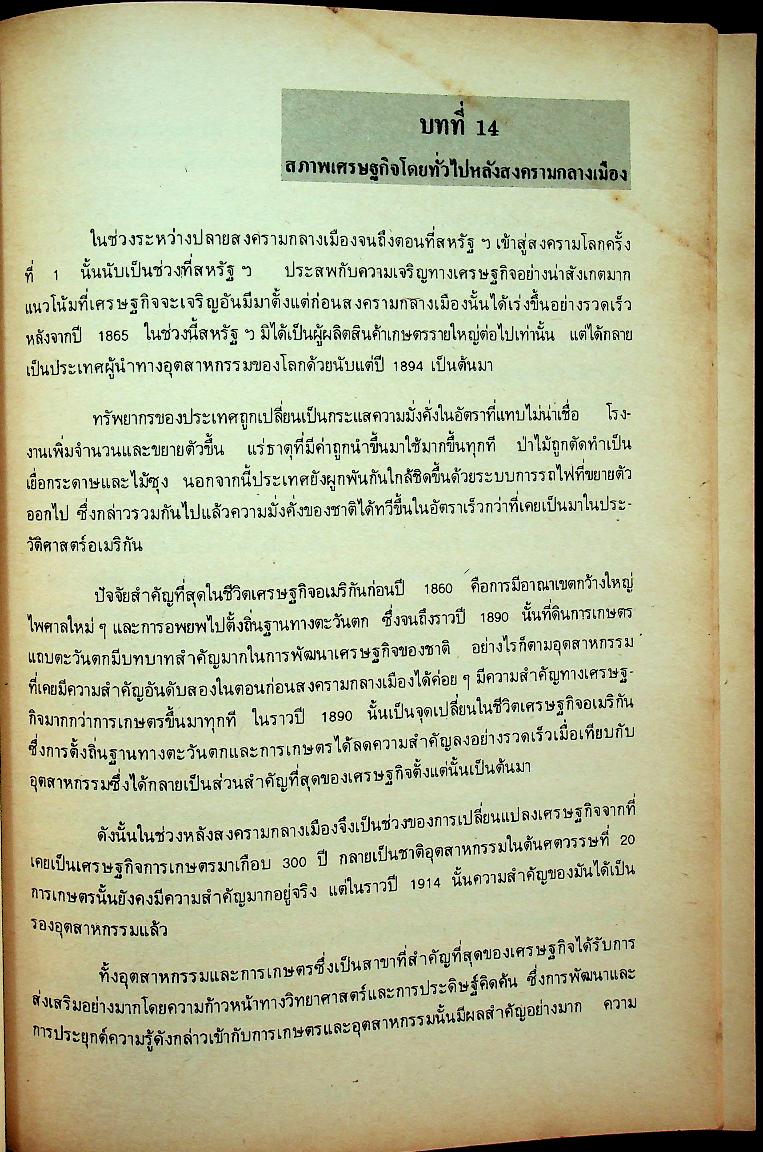 บทที่ 14
สภาพเศรษฐกิจโดยทั่วไปหลังสงครามกลางเมือง
ในช่วงระหว่างปลายสงครามกลางเมืองจนถึงตอนที่สหรัฐ ฯ เข้าสู่สงครามโลกครั้ง
ที่ 1 นั้นนับเป็นช่วงที่สหรัฐ ฯ ประสพกับความเจริญทางเศรษฐกิจอย่างน่าสังเกตมาก
แนวโน้มที่เศรษฐกิจจะเจริญอันมีมาตั้งแต่ก่อนสงครามกลางเมืองนั้นได้เร่งขึ้นอย่างรวดเร็ว
หลังจากปี 1865 ในช่วงนี้สหรัฐ ฯ มิได้เป็นผู้ผลิตสินค้าเกษตรรายใหญ่ต่อไปเท่านั้น แต่ได้กลาย
เป็นประเทศผู้นำทางอุตสาหกรรมของโลกด้วยนับแต่ปี 1894 เป็นต้นมา
ทรัพยากรของประเทศถูกเปลี่ยนเป็นกระแสความมั่งคั่งในอัตราที่แทบไม่น่าเชื่อ โรง-
งานเพิ่มจำนวนและขยายตัวขึ้น แร่ธาตุที่มีค่าถูกนำขึ้นมาใช้มากขึ้นทุกที ป่าไม้ถูกตัดทำเป็น
เยื่อกระดาษและไม้ซุง นอกจากนี้ประเทศยังผูกพันกันใกล้ชิดขึ้นด้วยระบบการรถไฟที่ขยายตัว
ออกไป ซึ่งกล่าวรวมกันไปแล้วความมั่งคั่งของชาติได้ทวีขึ้นในอัตราเร็วกว่าที่เคยเป็นมาในประ-
วัติศาสตร์อเมริกัน
ปัจจัยสำคัญที่สุดในชีวิตเศรษฐกิจอเมริกันก่อนปี 1860 คือการมีอาณาเขตกว้างใหญ่
ไพศาลใหม่ ๆ และการอพยพไปตั้งถิ่นฐานทางตะวันตก ซึ่งจนถึงราวปี 1890 นั้นที่ดินการเกษตร
แถบตะวันตกมีบทบาทสำคัญมากในการพัฒนาเศรษฐกิจของชาติ อย่างไรก็ตามอุตสาหกรรม
ที่เคยมีความสำคัญอันดับสองในตอนก่อนสงครามกลางเมืองได้ค่อย ๆ มีความสำคัญทางเศรษฐ-
กิจมากกว่าการเกษตรขึ้นมาทุกที ในราวปี 1890 นั้นเป็นจุดเปลี่ยนในชีวิตเศรษฐกิจอเมริกัน
ซึ่งการตั้งถิ่นฐานทางตะวันตกและการเกษตรได้ลดความสำคัญลงอย่างรวดเร็วเมื่อเทียบกับ
อุตสาหกรรมซึ่งได้กลายเป็นส่วนสำคัญที่สุดของเศรษฐกิจตั้งแต่นั้นเป็นต้นมา
ดังนั้นในช่วงหลังสงครามกลางเมืองจึงเป็นช่วงของการเปลี่ยนแปลงเศรษฐกิจจากที่
เคยเป็นเศรษฐกิจการเกษตรมาเกือบ 300 ปี กลายเป็นชาติอุตสาหกรรมในต้นศตวรรษที่ 20
การเกษตรนั้นยังคงมีความสำคัญมากอยู่จริง แต่ในราวปี 1914 นั้นความสำคัญของมันได้เป็น
รองอุตสาหกรรมแล้ว
ทั้งอุตสาหกรรมและการเกษตรซึ่งเป็นสาขาที่สำคัญที่สุดของเศรษฐกิจได้รับการ
ส่งเสริมอย่างมากโดยความก้าวหน้าทางวิทยาศาสตร์และการประดิษฐ์คิดค้น ซึ่งการพัฒนาและ
การประยุกต์ความรู้ดังกล่าวเข้ากับการเกษตรและอุตสาหกรรมนั้นมีผลสำคัญอย่างมาก ความ